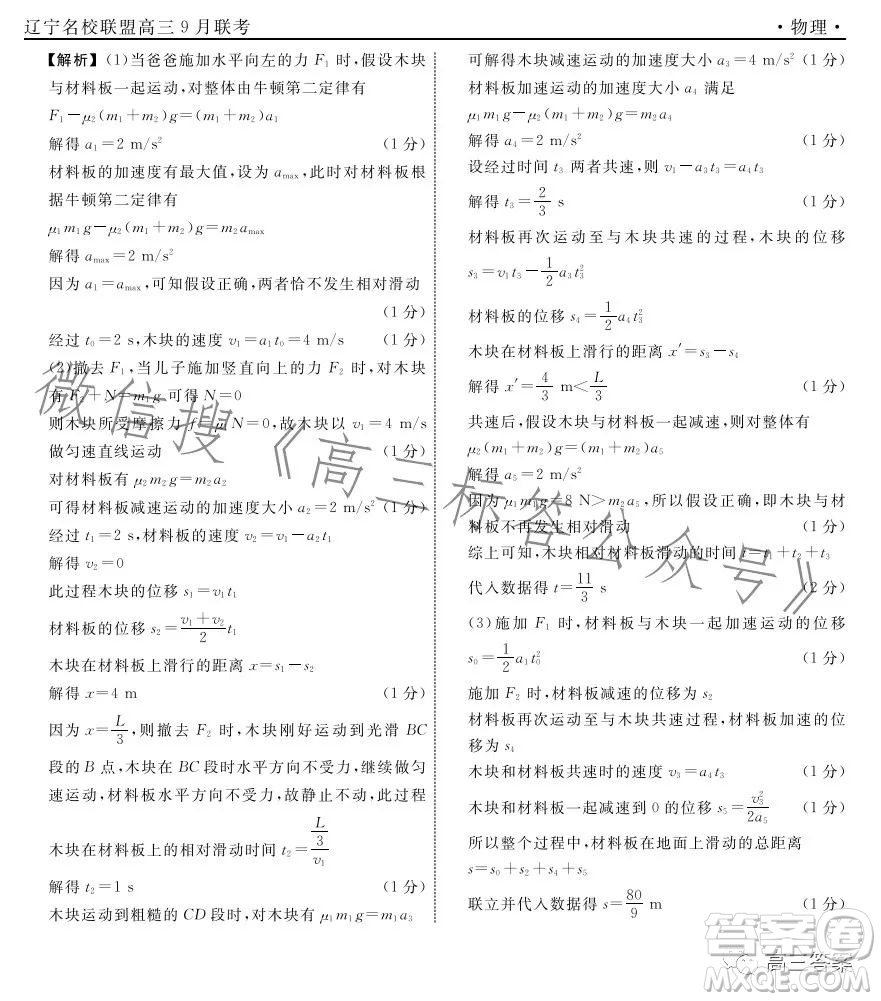 辽宁名校联盟高三9月联考
·物理·
【解析】(1)当爸爸施加水平向左的力 F₁ 时,假设木块
与材料板一起运动,对整体由牛顿第二定律有
F₁-μ₂(m₁+m₂)g=(m₁+m₂)a₁
解得 a₁=2 m/s² (1分)
材料板的加速度有最大值,设为 aₘₐₓ,此时对材料板根
据牛顿第二定律有
μ₁m₁g-μ₂(m₁+m₂)g=m₂aₘₐₓ
解得 aₘₐₓ=2 m/s²
因为 a₁=aₘₐₓ,可知假设正确,两者恰不发生相对滑动
(1分)
经过 t₀=2 s,木块的速度 v₁=a₁t₀=4 m/s (1分)
(2)撤去 F₁,当儿子施加竖直向上的力 F₂ 时,对木块
有 F₂+N=m₁g 可得 N=0
则木块所受摩擦力 f=μ₁N=0,故木块以 v₁=4 m/s
做匀速直线运动 (1分)
对材料板有 μ₂m₂g=m₂a₂
可得材料板减速运动的加速度大小 a₂=2 m/s²(1分)
经过 t₁=2 s,材料板的速度 v₂=v₁-a₂t₁
解得 v₂=0
此过程木块的位移 s₁=v₁t₁
材料板的位移 s₂=(v₁+v₂)/2 t₁
木块在材料板上滑行的距离 x=s₁-s₂
解得 x=4 m (1分)
因为 x=L/3,则撤去 F₂ 时,木块刚好运动到光滑 BC
段的 B 点,木块在 BC 段时水平方向不受力,继续做匀
速运动,材料板水平方向不受力,故静止不动,此过程
木块在材料板上的相对滑动时间 t₂=(L/3)/v₁
解得 t₂=1 s (1分)
木块运动到粗糙的 CD 段时,对木块有 μ₁m₁g=m₁a₃
可解得木块减速运动的加速度大小 a₃=4 m/s²(1分)
材料板加速运动的加速度大小 a₄ 满足
μ₁m₁g-μ₂(m₁+m₂)g=m₂a₄
解得 a₄=2 m/s² (1分)
设经过时间 t₃ 两者共速,则 v₁-a₃t₃=a₄t₃
解得 t₃=2/3 s (1分)
材料板再次运动至与木块共速的过程,木块的位移
s₃=v₁t₃-1/2 a₃t₃²
材料板的位移 s₄=1/2 a₄t₃²
木块在材料板上滑行的距离 x′=s₃-s₄
解得 x′=4/3 m<L/3 (1分)
共速后,假设木块与材料板一起减速,则对整体有
μ₂(m₁+m₂)g=(m₁+m₂)a₅
解得 a₅=2 m/s²
因为 μ₁m₁g=8 N>m₂a₅,所以假设正确,即木块与材
料板不再发生相对滑动 (1分)
综上可知,木块相对材料板滑动的时间 t=t₁+t₂+t₃
代入数据得 t=11/3 s (2分)
(3)施加 F₁ 时,材料板与木块一起加速运动的位移
s₀=1/2 a₁t₀² (1分)
施加 F₂ 时,材料板减速的位移为 s₂
材料板再次运动至与木块共速过程,材料板加速的位
移为 s₄
木块和材料板共速时的速度 v₃=a₄t₃ (1分)
木块和材料板一起减速到 0 的位移 s₅=v₃²/2a₅ (1分)
所以整个过程中,材料板在地面上滑动的总距离
s=s₀+s₂+s₄+s₅
联立并代入数据得 s=80/9 m (1分)
微信搜《高三标答公众号》
高三答案
答案圈
MXQE.COM